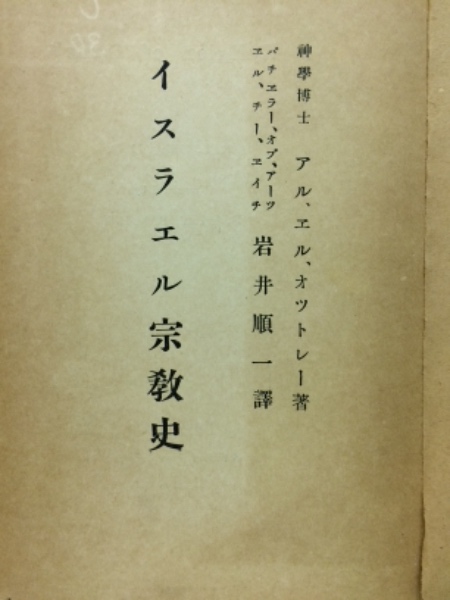 神學博士 アル、ヱル、オツトレー著
バチヱラー、オブ、アーツ
ヱル、チー、ヱイチ
岩井順一譯
イスラエル宗教史